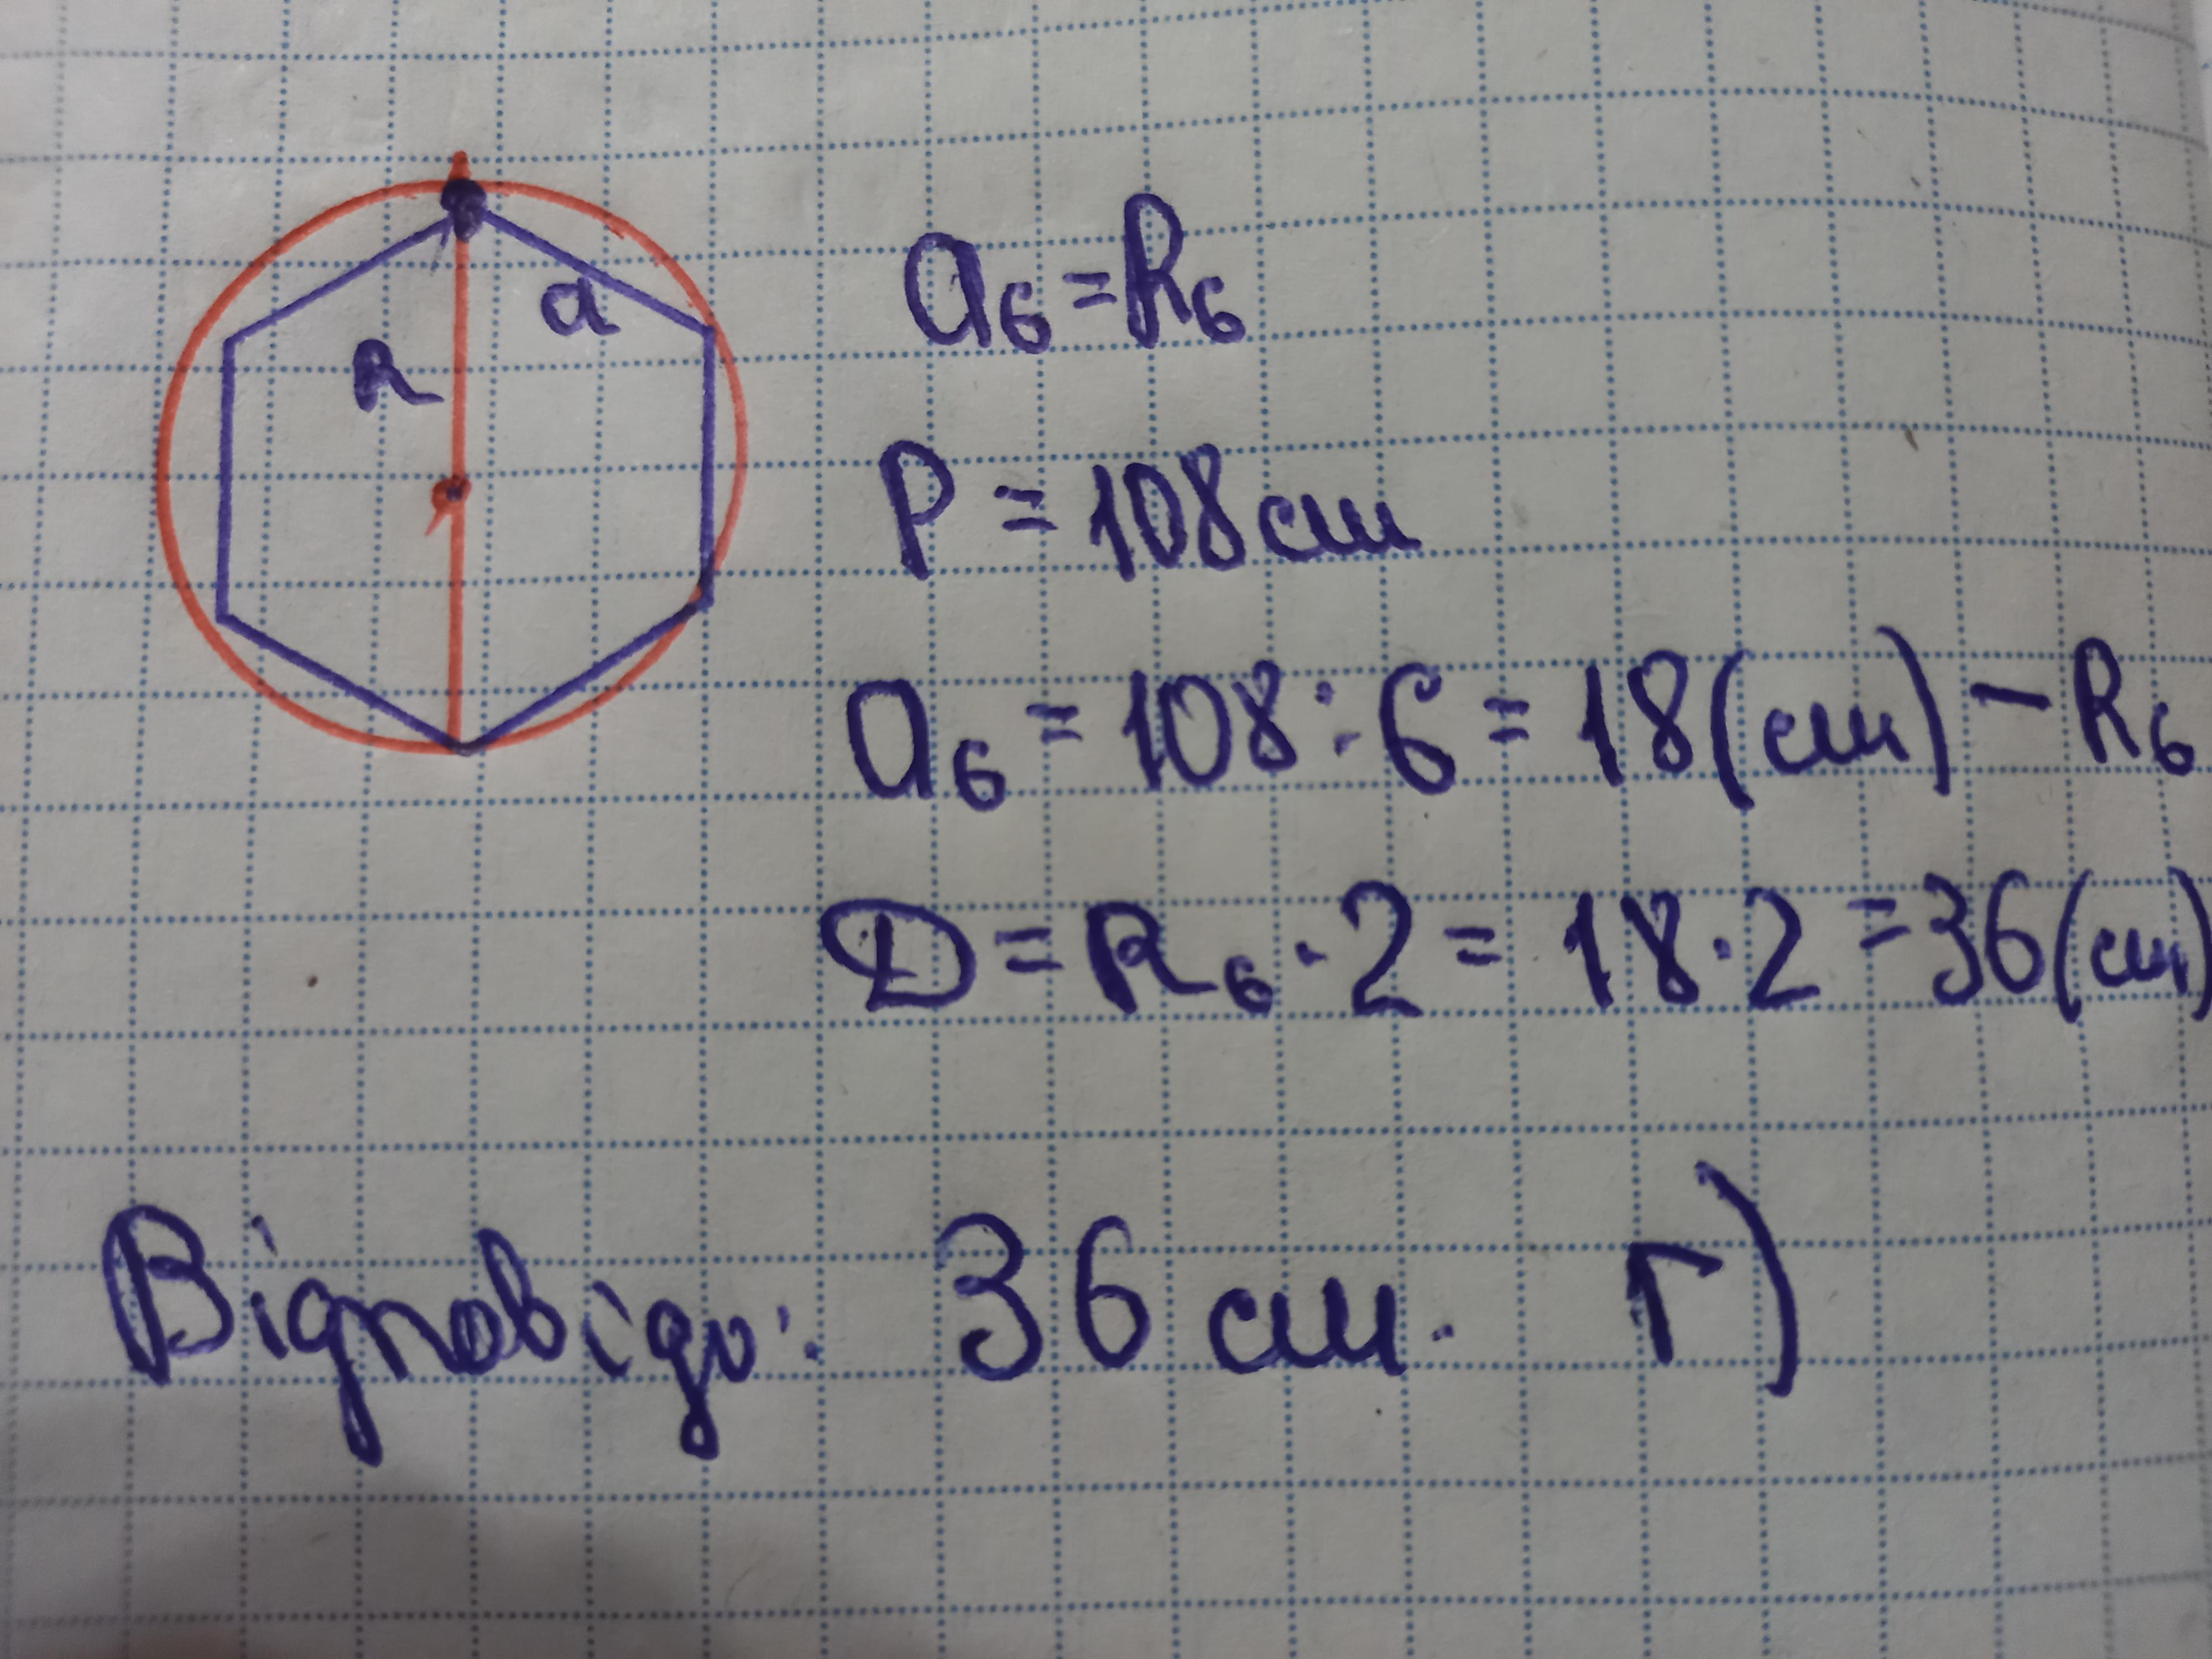 R
a
a₆ = R₆
P = 108 см
a₆ = 108 : 6 = 18 (см) - R₆
D = R₆ · 2 = 18 · 2 = 36 (см)
Відповідь: 36 см. г)